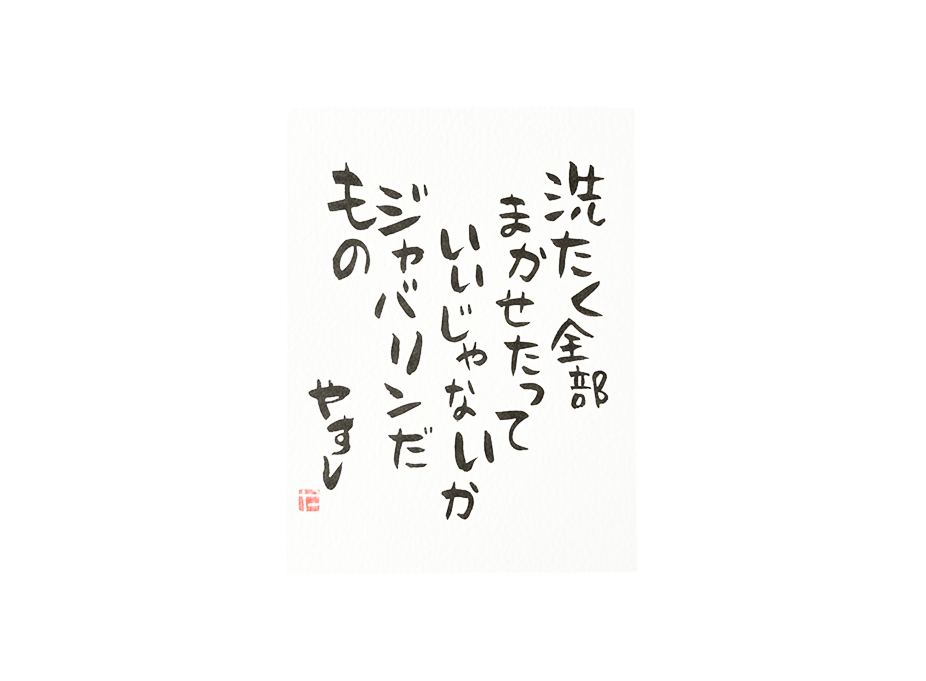 洗たく全部
まかせたって
いいじゃないか
ジャバリンだ
もの
やすし